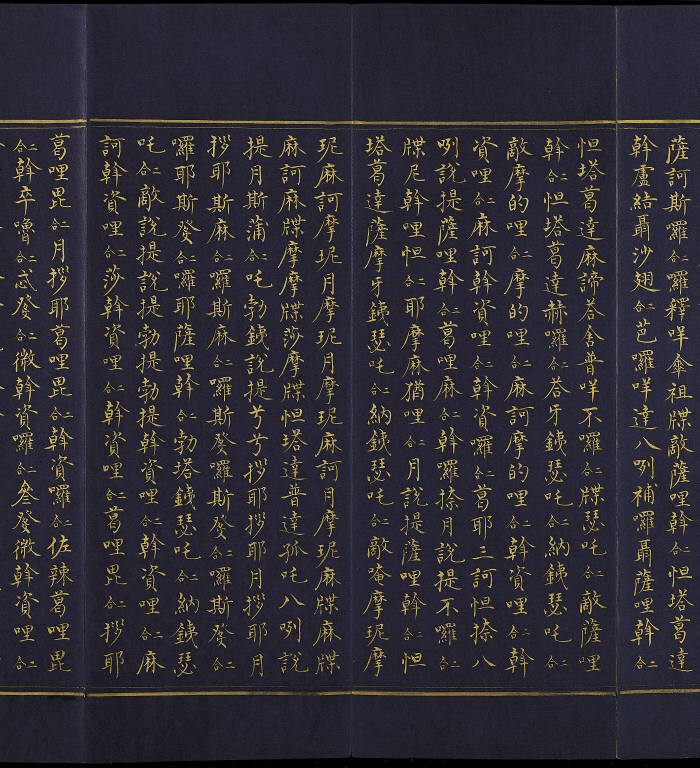 薩訶斯囉合二囉釋咩傘祖牒敵薩哩斡合二怛塔葛達
斡盧結聶沙翅合二芭囉咩達八咧補囉聶薩哩斡合二
怛塔葛達麻諦荅舍普咩不囉合二牒瑟吒合二敵薩哩
斡合二怛塔葛達赫囉合二荅牙銕瑟吒合二納銕瑟吒合二
敵摩的哩合二摩的哩合二麻訶摩的哩合二斡資哩合二斡
資哩合二麻訶斡資哩合二斡資囉合二葛耶三訶怛捺八
咧説提薩哩斡合二葛哩麻合二斡囉捺月説提不囉合二
牒尼斡哩怛合二耶摩麻猶哩合二月説提薩哩斡合二怛
塔葛達薩摩牙銕瑟吒合二納銕瑟吒合二敵唵摩玭摩
玭麻訶摩玭月摩玭月摩玭麻訶月摩玭麻牒麻牒
麻訶麻牒摩摩牒莎摩牒怛塔達普達孤吒八咧説
提月斯蒲合二吒勃銕説提兮兮拶耶拶耶月拶耶月
拶耶斯麻合二囉斯麻合二囉斯發囉斯發合二囉斯發合二
囉耶斯發合二囉耶薩哩斡合二勃塔銕瑟吒合二納銕瑟
吒合二敵説提説提勃提勃提斡資哩合二斡資哩合二麻
訶斡資哩合二莎斡資哩合二斡資哩合二葛哩毘合二拶耶
葛哩毘合二月拶耶葛哩毘合二斡資囉合二佐辣葛哩毘
合二斡卒嚕合二忒發合二微斡資囉合二叄發微斡資哩合二